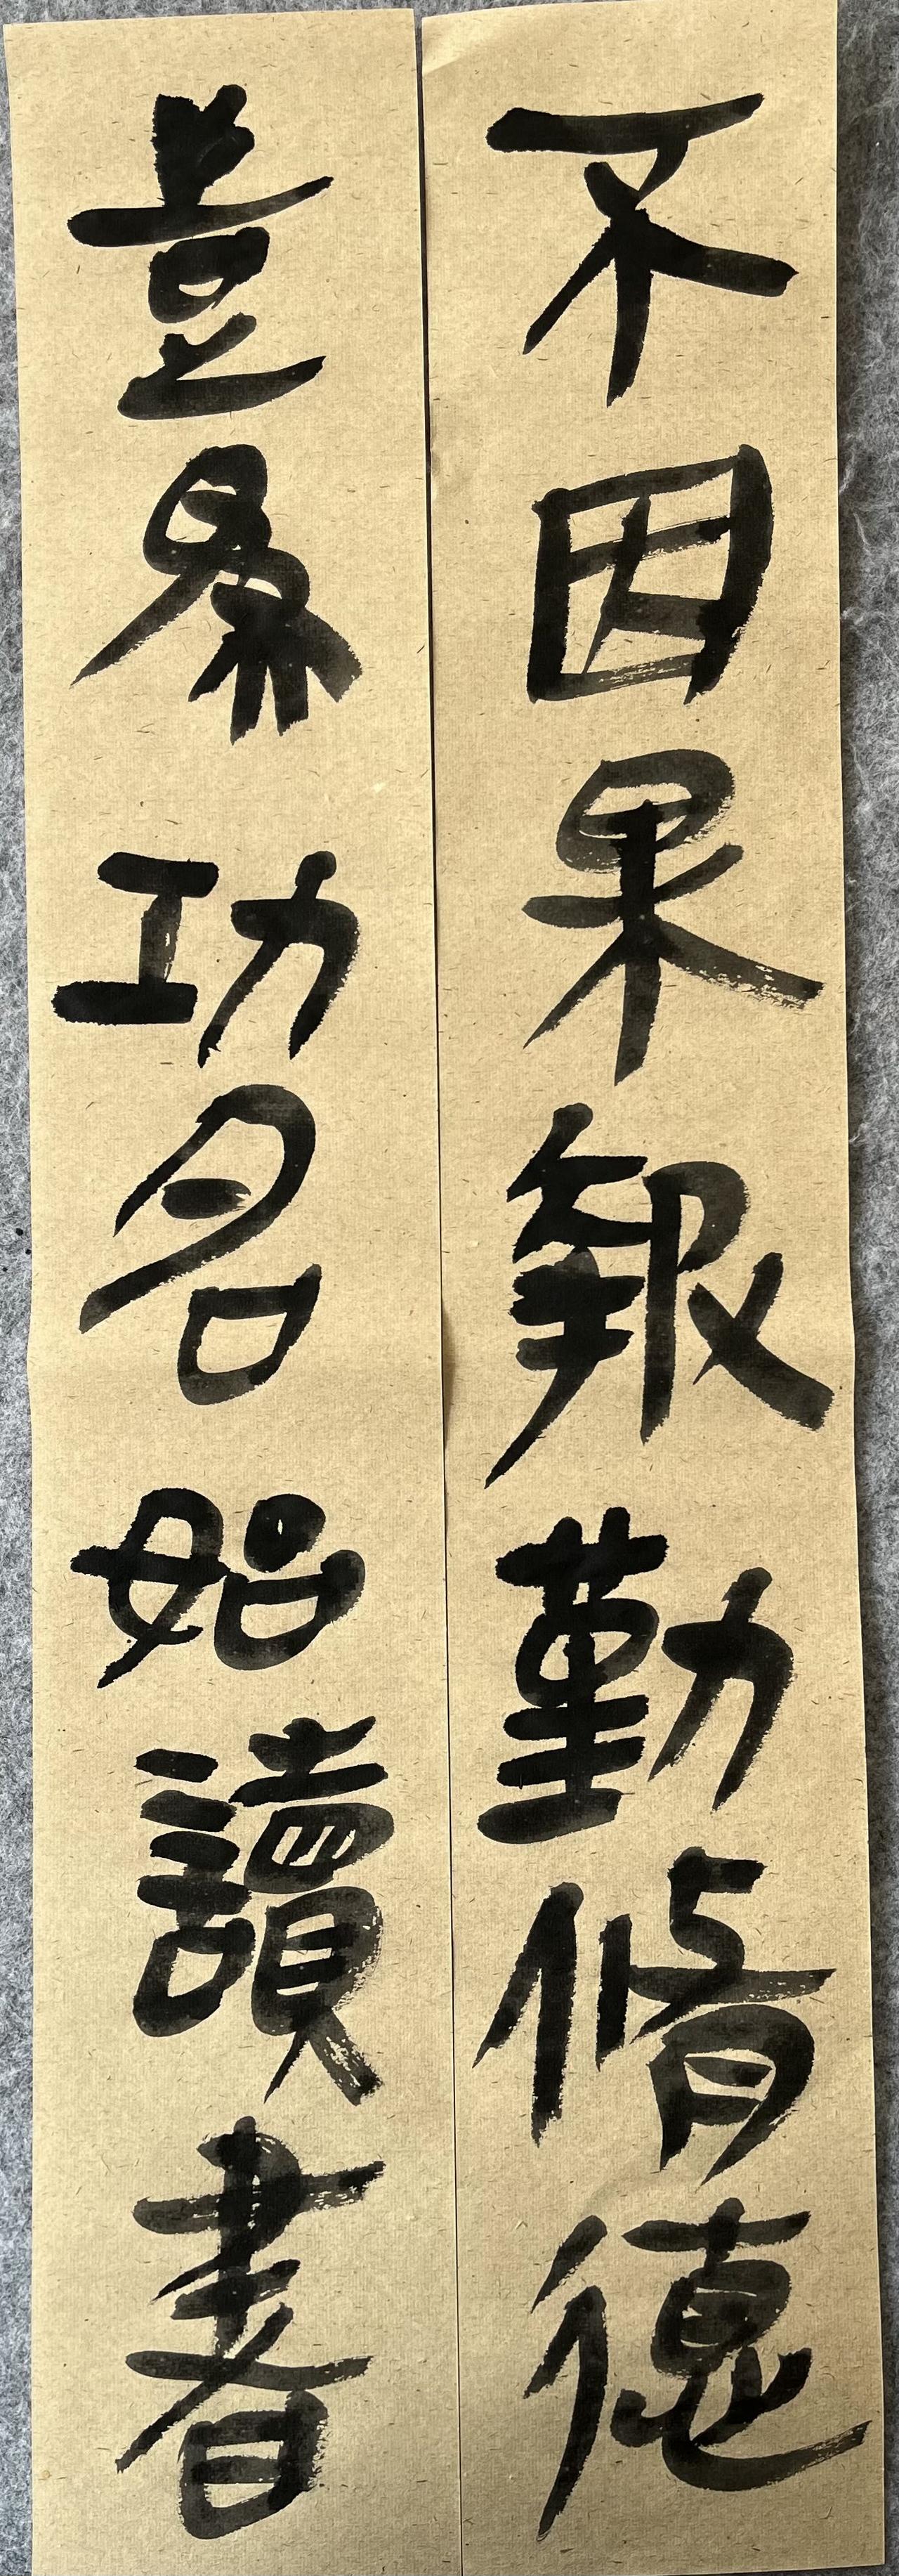 不因果報勤脩德
豈為功名始讀書